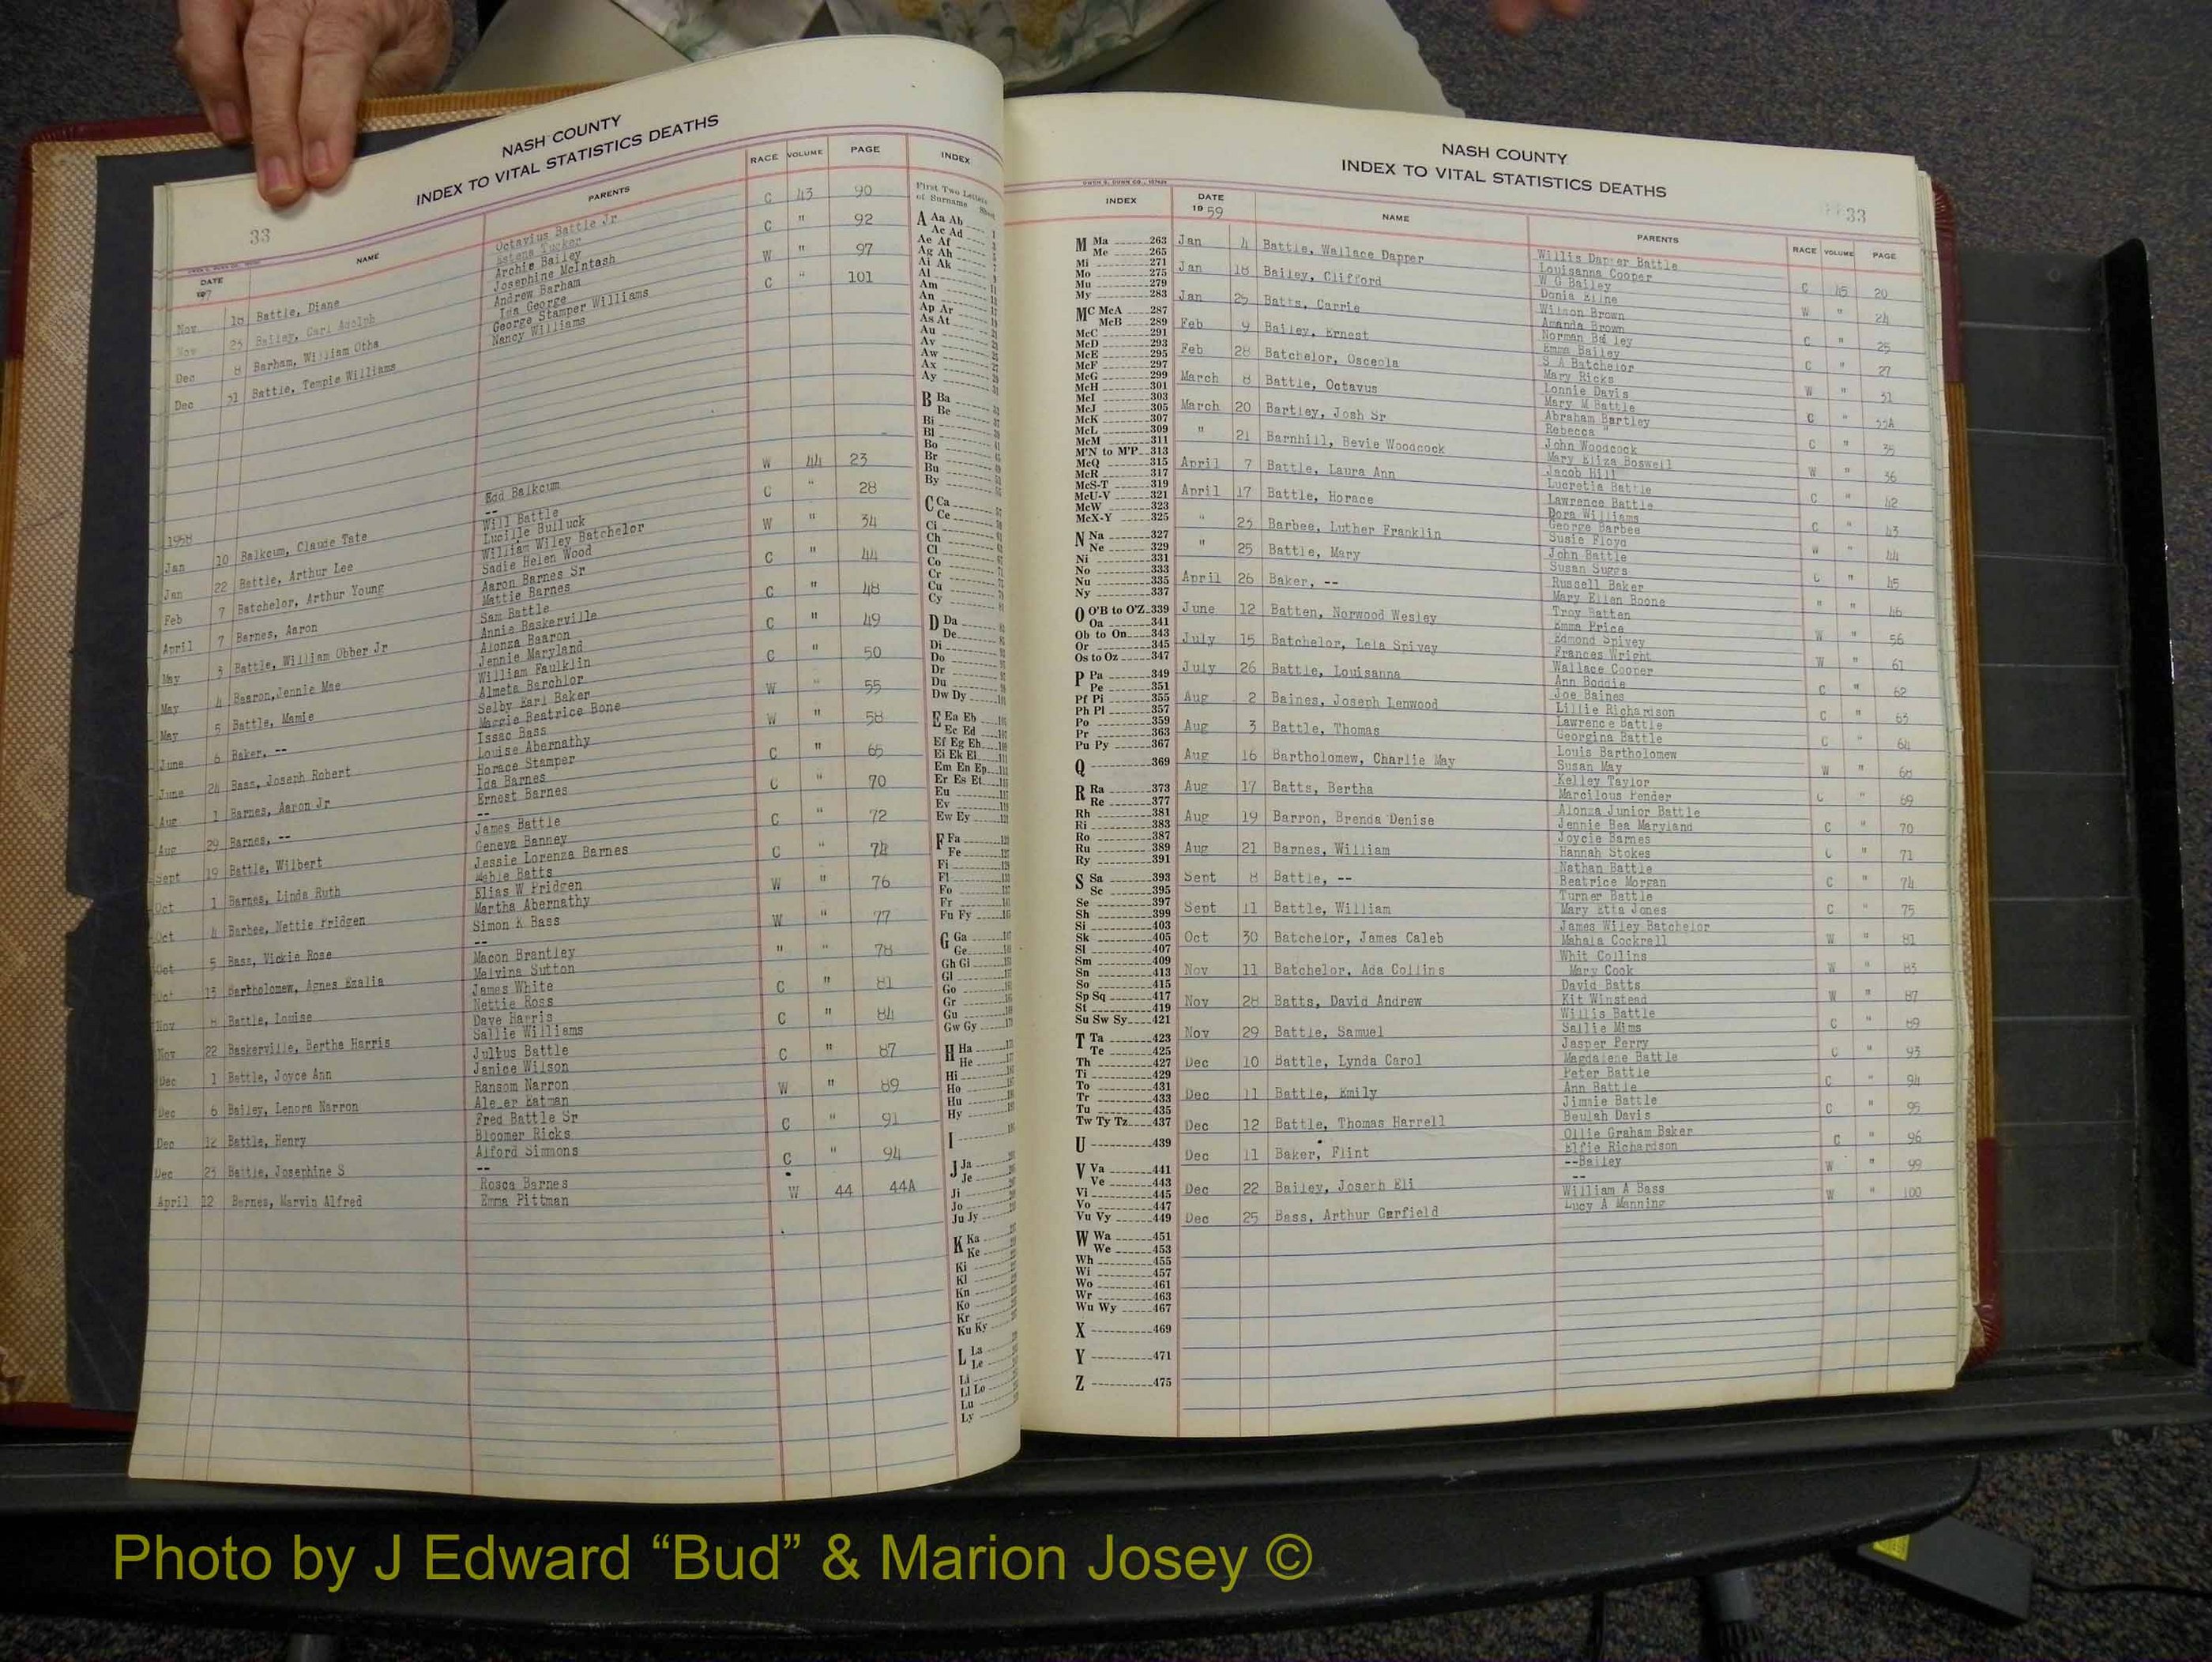 NASH COUNTY
INDEX TO VITAL STATISTICS DEATHS
33
DATE NAME PARENTS RACE VOLUME PAGE INDEX
Nov 18 Battle, Diane Octavius Battle Jr C 43 90
Estena Tucker
Nov 23 Bailey, Carl Adolph Archie Bailey C " 92
Josephine McIntash
Dec 8 Barham, William Otha Andrew Barham W " 97
Ida George
Dec 31 Battle, Temple Williams George Stamper Williams C " 101
Nancy Williams
1958
Jan 10 Balkcum, Claude Tate Edd Balkcum W 44 23
--
Jan 22 Battle, Arthur Lee Will Battle C " 28
Lucille Bulluck
Feb 7 Batchelor, Arthur Young William Wiley Batchelor W " 34
Sadie Helen Wood
April 7 Barnes, Aaron Aaron Barnes Sr C " 44
Mattie Barnes
May 3 Battle, William Obber Jr Sam Battle C " 48
Annie Baskerville
May 4 Baaron, Jennie Mae Alonza Baaron C " 49
Jennie Maryland
May 5 Battle, Mamie William Faulklin C " 50
Almeta Barchlor
June 6 Baker, -- Selby Earl Baker W " 55
Maggie Beatrice Bone
June 24 Bass, Joseph Robert Issac Bass W " 58
Louise Abernathy
Aug 1 Barnes, Aaron Jr Horace Stamper C " 65
Ida Barnes
Aug 29 Barnes, -- Ernest Barnes C " 70
--
Sept 19 Battle, Wilbert James Battle C " 72
Geneva Banney
Oct 1 Barnes, Linda Ruth Jessie Lorenza Barnes C " 74
Mable Batts
Oct 4 Barbee, Nettie Pridgen Elias W Pridgen W " 76
Martha Abernathy
Oct 5 Bass, Vickie Rose Simon K Bass W " 77
--
Oct 13 Bartholomew, Agnes Ezalia Macon Brantley " " 78
Melvina Sutton
Nov 8 Battle, Louise James White C " 81
Nettie Ross
Nov 22 Baskerville, Bertha Harris Dave Harris C " 84
Sallie Williams
Dec 1 Battle, Joyce Ann Julius Battle C " 87
Janice Wilson
Dec 6 Bailey, Lenora Narron Ransom Narron W " 89
Eatman
Dec 12 Battle, Henry Fred Battle Sr C " 91
Bloomer Ricks
Dec 23 Battle, Josephine S Alford Simmons C " 94
--
April 12 Barnes, Marvin Alfred Rosca Barnes W 44 44A
Emma Pittman
First Two Letters
of Surname
A Aa Ab
Ac Ad
Ae Af
Ag Ah
Ai Ak
Al
Am
An
Ap Ar
As At
Au
Av
Aw
Ax
Ay
B Ba
Be
Bi
Bl
Bo
Br
Bu
By
C Ca
Ce
Ci
Ch
Cl
Co
Cr
Cu
Cy
D Da
De
Di
Do
Dr
Du
Dw Dy
E Ea Eb
Ec Ed
Ef Eg Eh
Ei Ek El
Em En Ep
Er Es Et
Eu
Ev
Ew Ey
F Fa
Fe
Fi
Fl
Fo
Fr
Fu Fy
G Ga
Ge
Gh Gi
Gl
Go
Gr
Gu
Gw Gy
H Ha
He
Hi
Ho
Hu
Hy
I
J Ja
Je
Ji
Jo
Ju Jy
K Ka
Ke
Ki
Kl
Kn
Ko
Kr
Ku Ky
L La
Le
Li
Ll Lo
Lu
Ly
NASH COUNTY
INDEX TO VITAL STATISTICS DEATHS
33
INDEX DATE NAME PARENTS RACE VOLUME PAGE
1959
M Ma 263
Me 265
Mi 271
Mo 275
Mu 279
My 283
Mc McA 287
McB 289
McC 291
McD 293
McE 295
McF 297
McG 299
McH 301
McI 303
McJ 305
McK 307
McL 309
McM 311
M'N to M'P 313
McQ 315
McR 317
McS-T 319
McU-V 321
McW 323
McX-Y 325
N Na 327
Ne 329
Ni 331
No 333
Nu 335
Ny 337
O O'B to O'Z 339
Oa 341
Ob to On 343
Or 345
Os to Oz 347
P Pa 349
Pe 351
Pf Pi 355
Ph Pl 357
Po 359
Pr 363
Pu Py 367
Q 369
R Ra 373
Re 377
Rh 381
Ri 383
Ro 387
Ru 389
Ry 391
S Sa 393
Sc 395
Se 397
Sh 399
Si 403
Sk 405
Sl 407
Sm 409
Sn 413
So 415
Sp Sq 417
St 419
Su Sw Sy 421
T Ta 423
Te 425
Th 427
Ti 429
To 431
Tr 433
Tu 435
Tw Ty Tz 437
U 439
V Va 441
Ve 443
Vi 445
Vo 447
Vu Vy 449
W Wa 451
We 453
Wh 455
Wi 457
Wo 461
Wr 463
Wu Wy 467
X 469
Y 471
Z 475
Jan 4 Battle, Wallace Dapper Willis Dapper Battle C 45 20
Louisanna Cooper
Jan 18 Bailey, Clifford W G Bailey W " 24
Donia Eline
Jan 25 Batts, Carrie Wilson Brown C " 25
Amanda Brown
Feb 9 Bailey, Ernest Norman Bailey C " 27
Emma Bailey
Feb 28 Batchelor, Osceola S A Batchelor W " 31
Mary Ricks
March 8 Battle, Octavus Lonnie Davis C " 33A
Mary M Battle
March 20 Bartley, Josh Sr Abraham Bartley C " 35
Rebecca "
" 21 Barnhill, Bevie Woodcock John Woodcock W " 36
Mary Eliza Boswell
April 7 Battle, Laura Ann Jacob Hill C " 42
Lucretia Battle
April 17 Battle, Horace Lawrence Battle C " 43
Dora Williams
" 23 Barbee, Luther Franklin George Barbee W " 44
Susie Floyd
" 25 Battle, Mary John Battle C " 45
Susan Suggs
April 26 Baker, -- Russell Baker " " 46
Mary Ellen Boone
June 12 Batten, Norwood Wesley Troy Batten W " 56
Emma Price
July 15 Batchelor, Lela Spivey Edmond Spivey W " 61
Frances Wright
July 26 Battle, Louisanna Wallace Cooper C " 62
Ann Boddie
Aug 2 Baines, Joseph Lenwood Joe Baines C " 63
Lillie Richardson
Aug 3 Battle, Thomas Lawrence Battle C " 64
Georgina Battle
Aug 16 Bartholomew, Charlie May Louis Bartholomew W " 68
Susan May
Aug 17 Batts, Bertha Kelley Taylor C " 69
Marcilous Pender
Aug 19 Barron, Brenda Denise Alonza Junior Battle C " 70
Jennie Bea Maryland
Aug 21 Barnes, William Joycie Barnes C " 71
Hannah Stokes
Sept 8 Battle, -- Nathan Battle C " 74
Beatrice Morgan
Sept 11 Battle, William Turner Battle C " 75
Mary Etta Jones
Oct 30 Batchelor, James Caleb James Wiley Batchelor W " 81
Mahala Cockrell
Nov 11 Batchelor, Ada Collins Whit Collins W " 83
Mary Cook
Nov 28 Batts, David Andrew David Batts W " 87
Kit Winstead
Nov 29 Battle, Samuel Willis Battle C " 89
Sallie Mims
Dec 10 Battle, Lynda Carol Jasper Perry C " 93
Magdalene Battle
Dec 11 Battle, Emily Peter Battle C " 94
Ann Battle
Dec 12 Battle, Thomas Harrell Jimmie Battle C " 95
Beulah Davis
Dec 11 Baker, Flint Ollie Graham Baker C " 96
Elfie Richardson
Dec 22 Bailey, Joseph Eli --Bailey W " 99
--
Dec 25 Bass, Arthur Garfield William A Bass W " 100
Lucy A Manning
Photo by J Edward “Bud” & Marion Josey ©